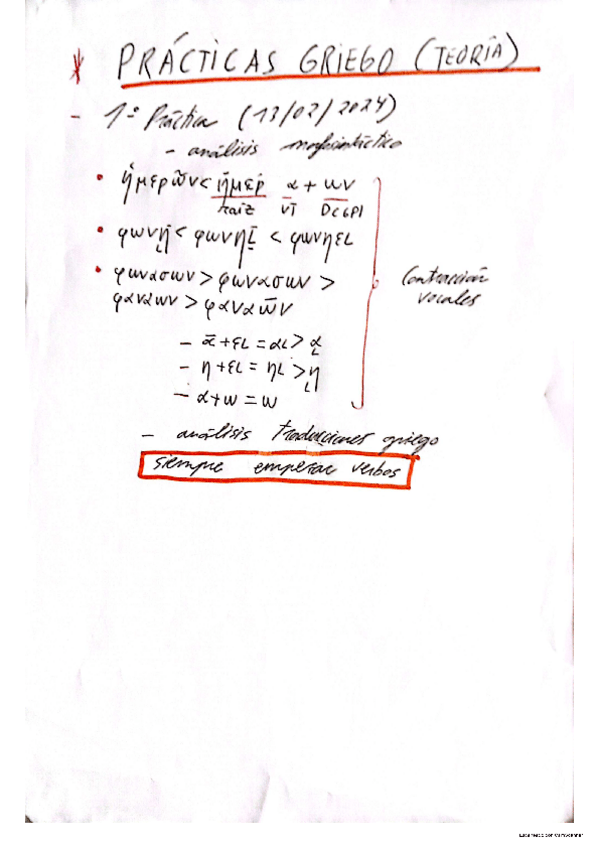 * PRÁCTICAS GRIEGO (TEORÍA)
- 1º Práctica (13/02/2024)
- análisis morfosintáctico
• ἡμερῶν < ἡμερ α + ων
raíz VT DCGPl
• φωνῇ < φωνηῑ < φωνηει
• φωνασων > φωνασων >
φαναων > φαναω̄ν
Contracción vocales
- ᾱ + ει = αι > ᾳ
- η + ει = ηι > ῃ
- α + ω = ω
- análisis traducciones griego
siempre empezar verbos